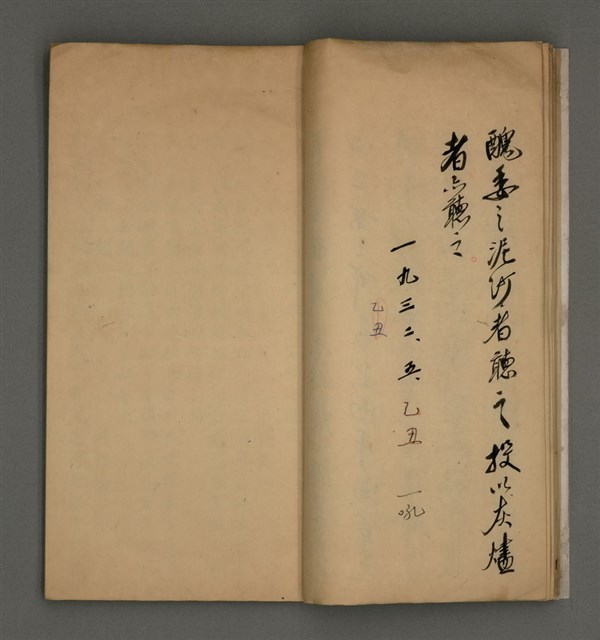 醜委之泥沙者聽之投以灰燼
者亦聽之
一九三二、五、乙丑 一吼
乙丑